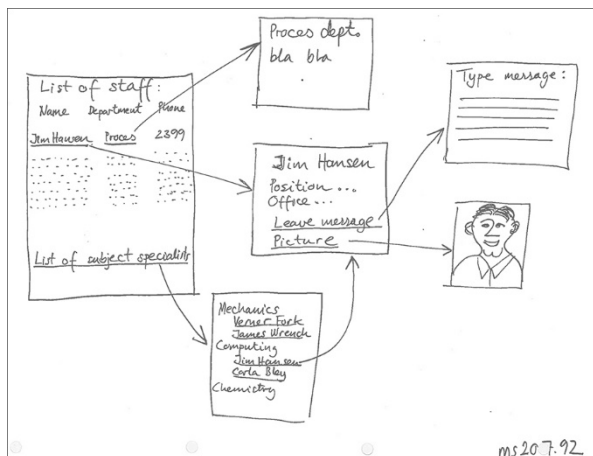 Proces dept.
bla bla
List of staff:
Name Department Phone
Jim Hansen Proces 2399
List of subject specialists
Jim Hansen
Position ...
Office ...
Leave message
Picture
Type message:
Mechanics
Verner Fork
James Wrench
Computing
Jim Hansen
Carla Bley
Chemistry
ms 20.7.92